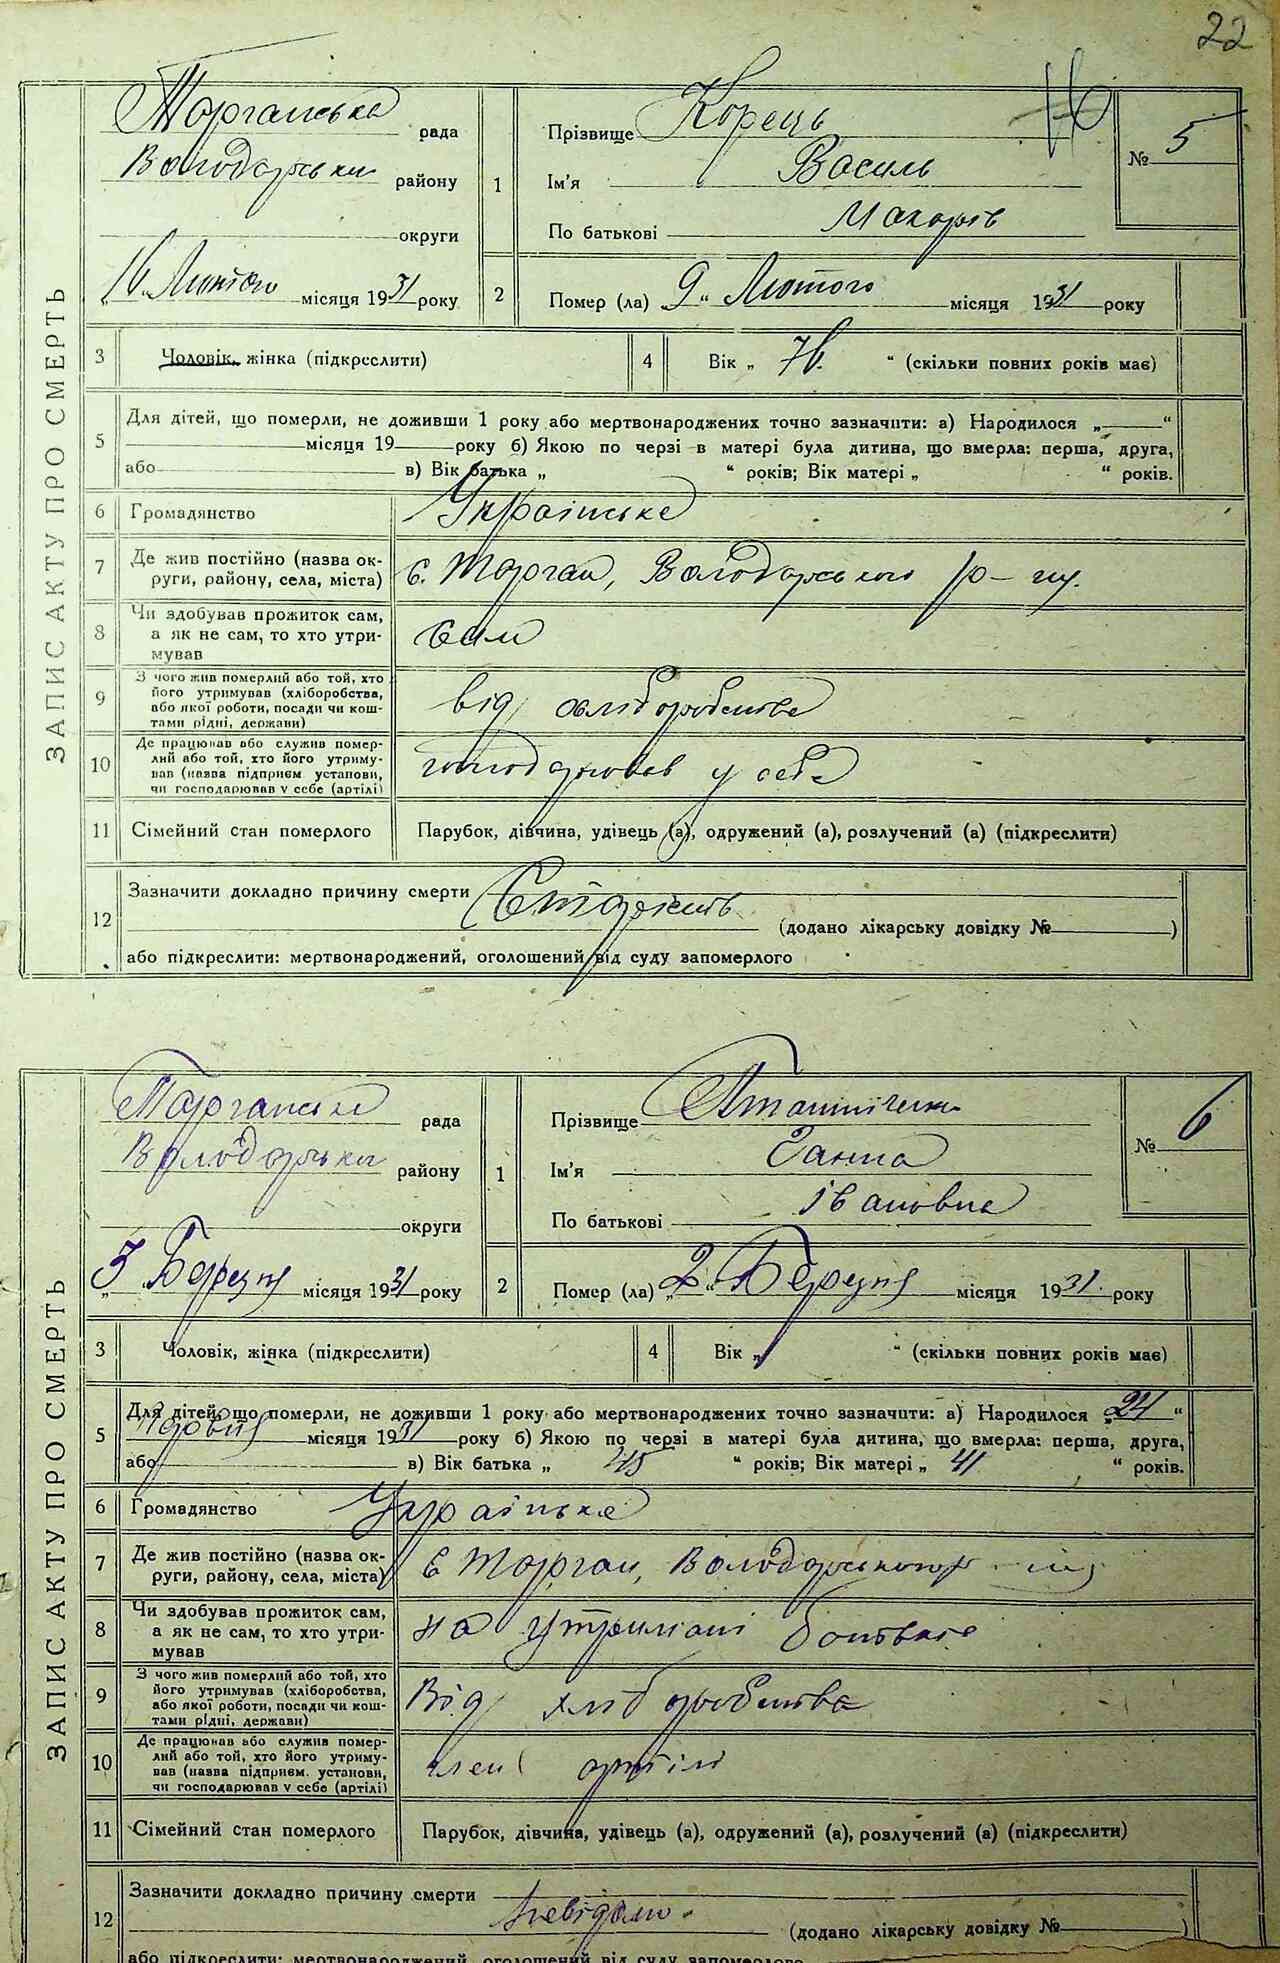 22
ЗАПИС АКТУ ПРО СМЕРТЬ
Торганська рада
Володарськи району
округи
16 Лютого місяця 1931 року
1
Прізвище Корець
Ім'я Василь
По батькові Макарів
№ 5
2
Помер (ла) „9“ Лютого місяця 1931 року
3 Чоловік, жінка (підкреслити)
4 Вік „ 76 “ (скільки повних років має)
5 Для дітей, що померли, не доживши 1 року або мертвонароджених точно зазначити: а) Народилося „ “
місяця 19 року б) Якою по черзі в матері була дитина, що вмерла: перша, друга,
або в) Вік батька „ “ років; Вік матері „ “ років.
6 Громадянство Українське
7 Де жив постійно (назва ок-
руги, району, села, міста) с. Торган, Володарського р-ну.
8 Чи здобував прожиток сам,
а як не сам, то хто утри-
мував
сам
9 З чого жив померлий або той, хто
його утримував (хліборобства,
або якої роботи, посади чи кош-
тами рідні, держави)
від хліборобства
10 Де працював або служив помер-
лий або той, хто його утриму-
вав (назва підприєм установи,
чи господарював у себе (артілі)
господарював у себе
11 Сімейний стан померлого Парубок, дівчина, удівець (а), одружений (а), розлучений (а) (підкреслити)
12 Зазначити докладно причину смерти Старість
(додано лікарську довідку № )
або підкреслити: мертвонароджений, оголошений від суду запомерлого
ЗАПИС АКТУ ПРО СМЕРТЬ
Торганська рада
Володарськи району
округи
„3“ Березня місяця 1931 року
1
Прізвище
Ім'я Ганна
По батькові Івановна
№ 6
2
Помер (ла) „2“ Березня місяця 1931 року
3 Чоловік, жінка (підкреслити)
4 Вік „ “ (скільки повних років має)
5 Для дітей, що померли, не доживши 1 року або мертвонароджених точно зазначити: а) Народилося „24“
місяця 1931 року б) Якою по черзі в матері була дитина, що вмерла: перша, друга,
або в) Вік батька „ 45 “ років; Вік матері „ 41 “ років.
6 Громадянство Українське
7 Де жив постійно (назва ок-
руги, району, села, міста) с Торган, Володарського
8 Чи здобував прожиток сам,
а як не сам, то хто утри-
мував
на утримані батьків
9 З чого жив померлий або той, хто
його утримував (хліборобства,
або якої роботи, посади чи кош-
тами рідні, держави)
Від хліборобства
10 Де працював або служив помер-
лий або той, хто його утриму-
вав (назва підприєм. установи,
чи господарював у себе (артілі)
член артілі
11 Сімейний стан померлого Парубок, дівчина, удівець (а), одружений (а), розлучений (а) (підкреслити)
12 Зазначити докладно причину смерти
невідомо.
(додано лікарську довідку № )
або підкреслити: мертвонароджений, оголошений від суду запомерлого